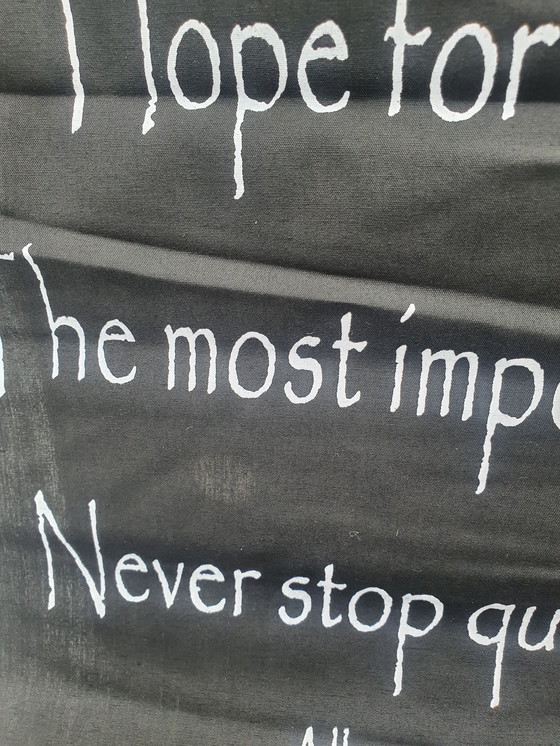 Hope for
The most impo
Never stop qu
All